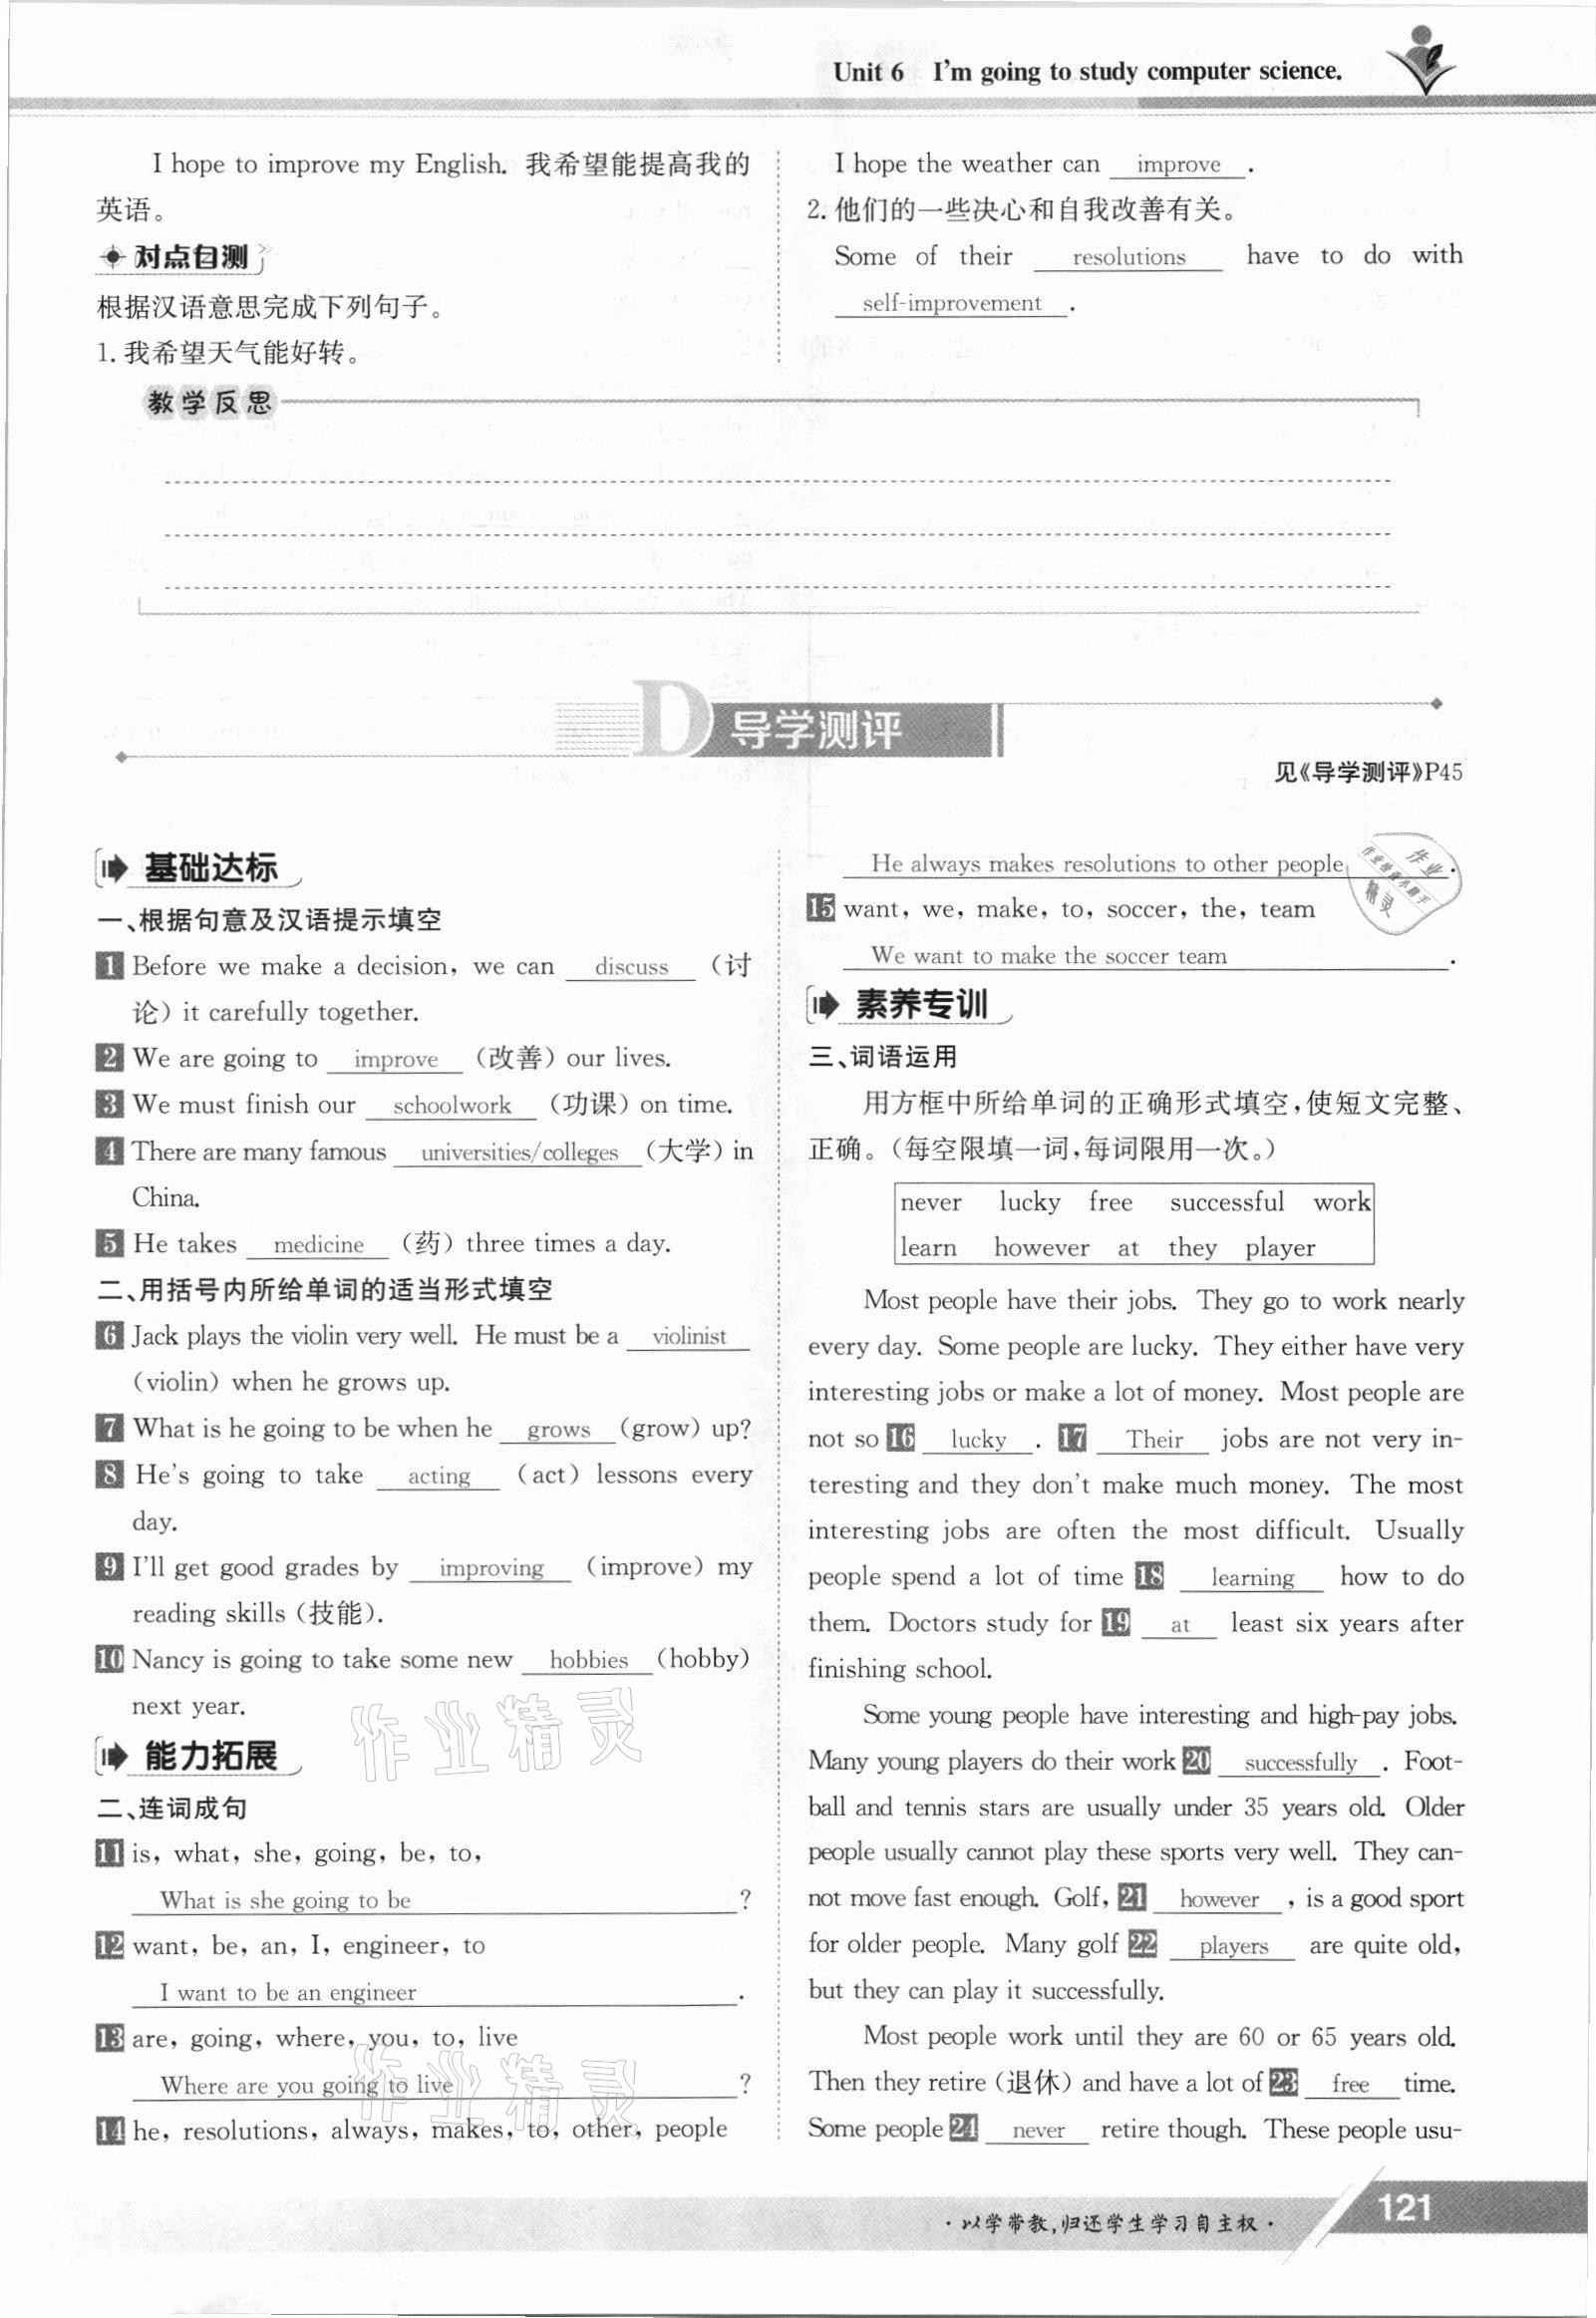 Unit 6 I'm going to study computer science.
I hope to improve my English. 我希望能提高我的
英语。
对点自测
根据汉语意思完成下列句子。
1. 我希望天气能好转。
I hope the weather can improve .
2. 他们的一些决心和自我改善有关。
Some of their resolutions have to do with
self-improvement .
教学反思
D 导学测评
见《导学测评》P45
基础达标
一、根据句意及汉语提示填空
1 Before we make a decision, we can discuss (讨
论) it carefully together.
2 We are going to improve (改善) our lives.
3 We must finish our schoolwork (功课) on time.
4 There are many famous universities/colleges (大学) in
China.
5 He takes medicine (药) three times a day.
二、用括号内所给单词的适当形式填空
6 Jack plays the violin very well. He must be a violinist
(violin) when he grows up.
7 What is he going to be when he grows (grow) up?
8 He's going to take acting (act) lessons every
day.
9 I'll get good grades by improving (improve) my
reading skills (技能).
10 Nancy is going to take some new hobbies (hobby)
next year.
能力拓展
二、连词成句
11 is, what, she, going, be, to,
What is she going to be ?
12 want, be, an, I, engineer, to
I want to be an engineer .
13 are, going, where, you, to, live
Where are you going to live ?
14 he, resolutions, always, makes, to, other, people
He always makes resolutions to other people .
15 want, we, make, to, soccer, the, team
We want to make the soccer team .
素养专训
三、词语运用
用方框中所给单词的正确形式填空,使短文完整、
正确。(每空限填一词,每词限用一次。)
never lucky free successful work
learn however at they player
Most people have their jobs. They go to work nearly
every day. Some people are lucky. They either have very
interesting jobs or make a lot of money. Most people are
not so 16 lucky . 17 Their jobs are not very in-
teresting and they don't make much money. The most
interesting jobs are often the most difficult. Usually
people spend a lot of time 18 learning how to do
them. Doctors study for 19 at least six years after
finishing school.
Some young people have interesting and high-pay jobs.
Many young players do their work 20 successfully . Foot-
ball and tennis stars are usually under 35 years old. Older
people usually cannot play these sports very well. They can-
not move fast enough. Golf, 21 however , is a good sport
for older people. Many golf 22 players are quite old,
but they can play it successfully.
Most people work until they are 60 or 65 years old.
Then they retire (退休) and have a lot of 23 free time.
Some people 24 never retire though. These people usu-
作业精灵
作业精灵
作业
精灵
·以学带教,归还学生学习自主权·
121